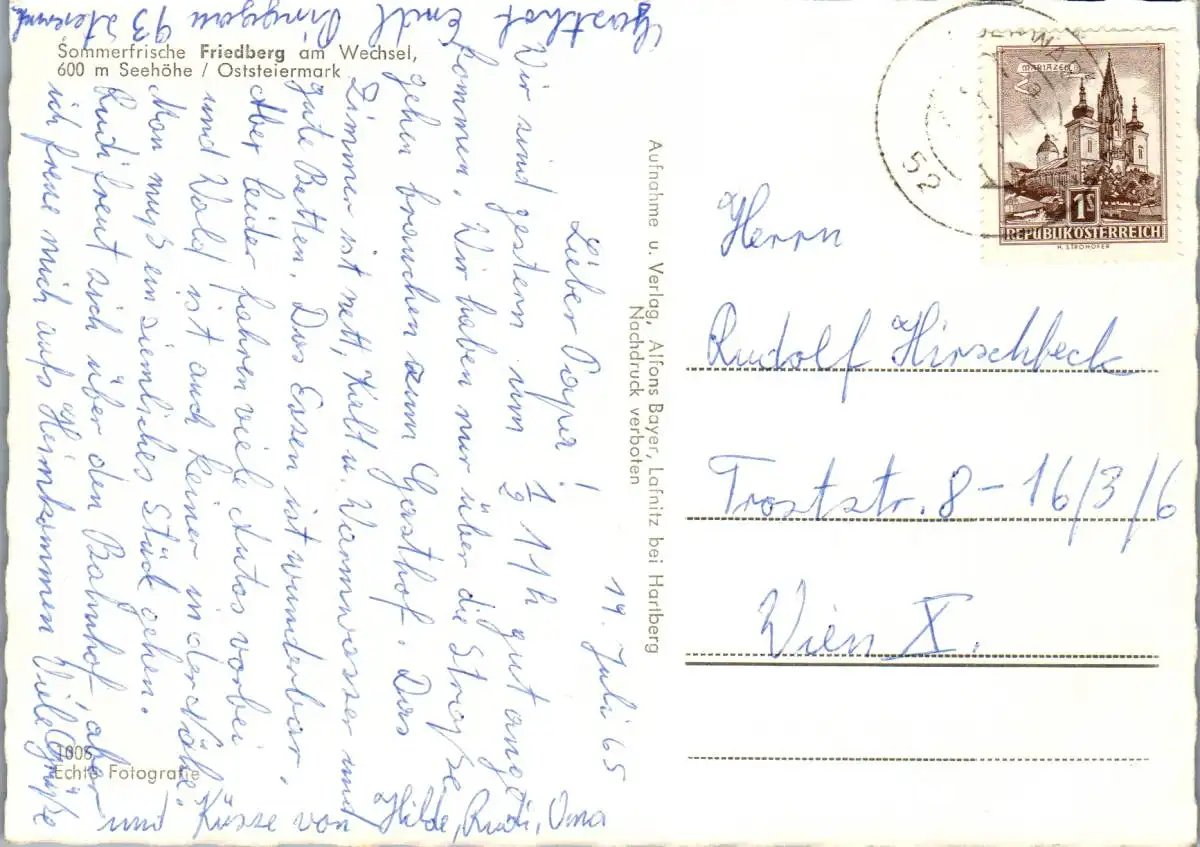 Sommerfrische Friedberg am Wechsel,
600 m Seehöhe / Oststeiermark
Gasthof Endl Pinggau 93 Steierm
19. Juli 65
Lieber Papa!
Wir sind gestern um 1/2 11h gut angek
kommen. Wir haben nur über die Straße
gehen brauchen zum Gasthof. Das
Zimmer ist nett, Kalt u. Warmwasser und
gute Betten. Das Essen ist wunderbar.
Aber leider fahren viele Autos vorbei
und Wald ist auch keiner in der Nähe.
Man muß ein ziemliches Stück gehen.
Rudi freut sich über den Bahnhof, aber
ich freue mich aufs Heimkommen Viele Grüße
und Küsse von Hilde, Rudi, Oma
1006
Echte Fotografie
Aufnahme u. Verlag, Alfons Bayer, Lafnitz bei Hartberg
Nachdruck verboten
52
MARIAZELL
1S
REPUBLIK ÖSTERREICH
H. STROHOFER
Herrn
Rudolf Hirschbeck
Troststr. 8-16/3/6
Wien X.